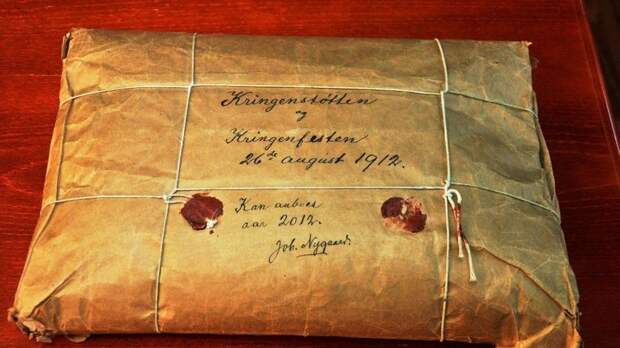 Kringenstötten
og
Kringenfesten
26de august 1912.
Kan aabnes
aar 2012.
Joh. Nygaard.